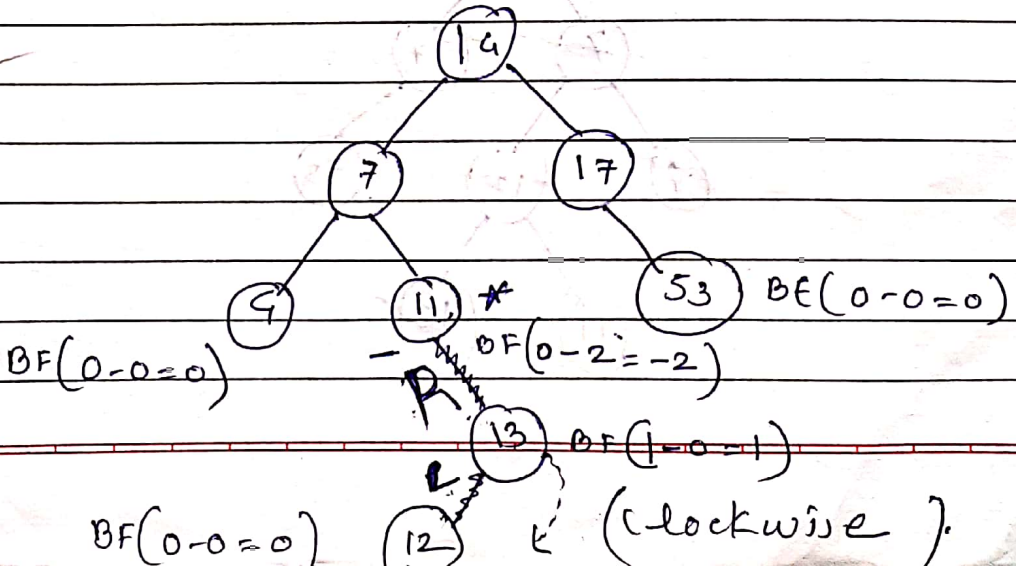 14
7 17
4 11 * 53 BF(0-0=0)
BF(0-0=0) - BF(0-2=-2)
R
13 BF(1-0=1)
L
BF(0-0=0) 12 (clockwise).